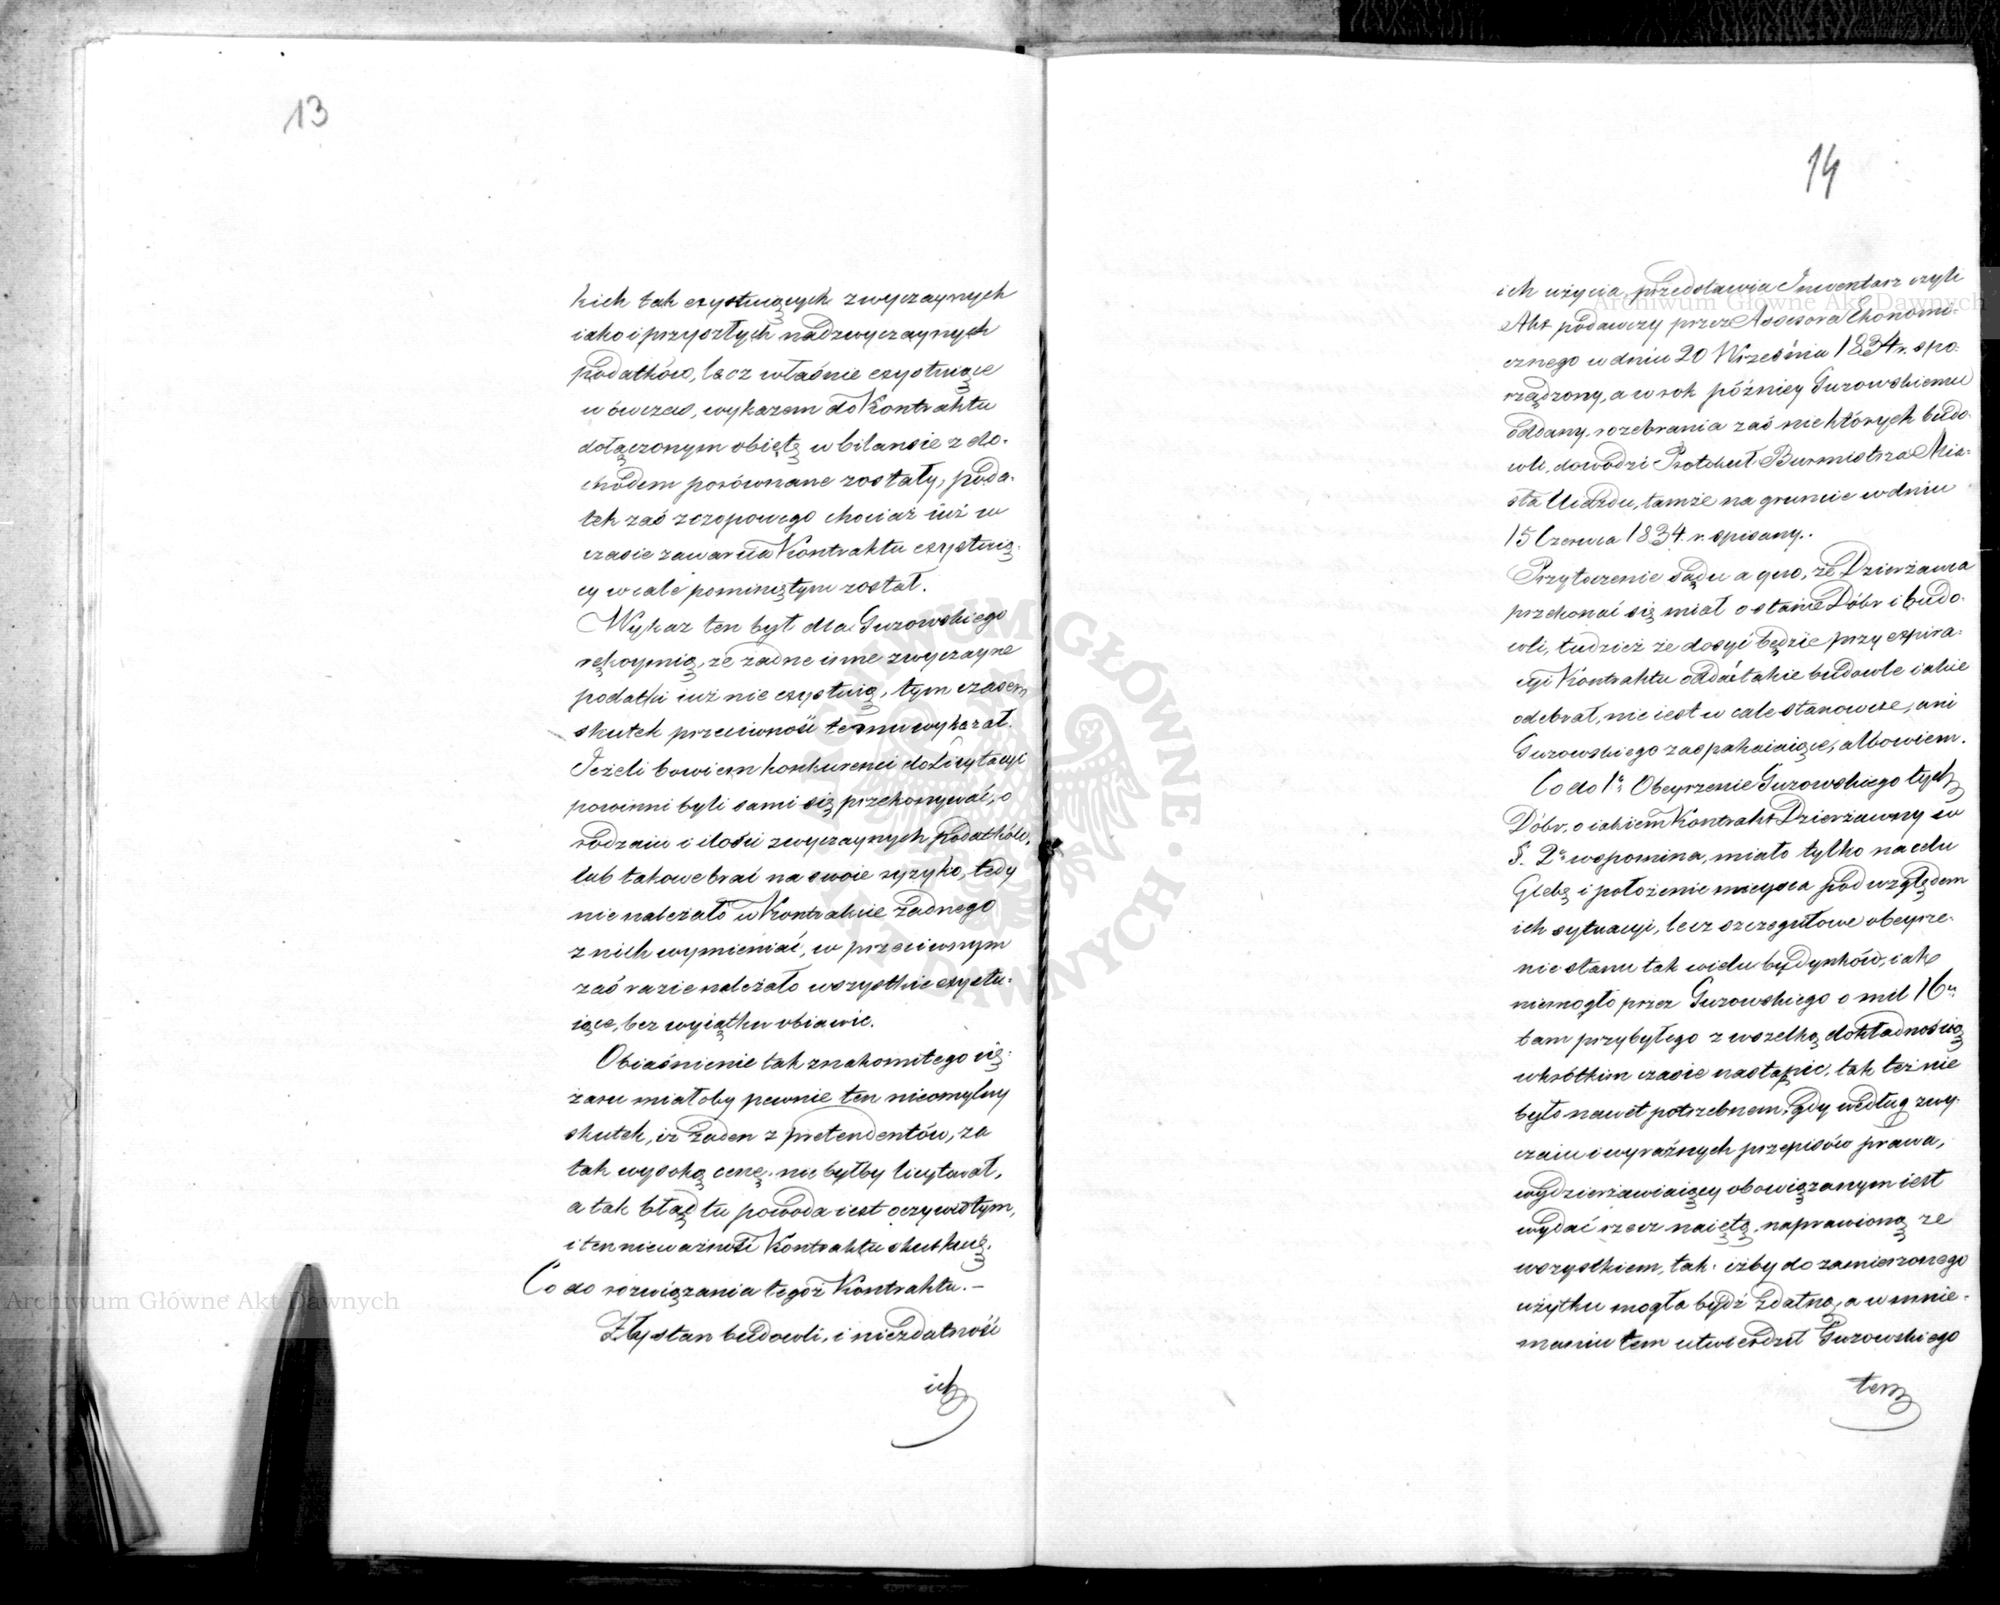 13
kich tak exystuiących zwyczaynych
iako i przyszłych nadzwyczaynych
podatków, lecz właśnie exystuiące
wówczas, wykazem do Kontraktu
dołączonym obięte w bilansie z do-
chodem porównane zostały, poda-
tek zaś czopowego chociaż iuż w
czasie zawarcia Kontraktu exystuią-
cy wcale pominiętym został.
Wykaz ten był dla Gurowskiego
rękoymią, że żadne inne zwyczayne
podatki iuż nie exystuią, tym czasem
skutek przeciwność temu wykazał.
Jeżeli bowiem konkurenci do Licytacyi
powinni byli sami się przekonywać, o
rodzaiu i ilości zwyczaynych podatków,
lub takowe brać na swoie ryzyko, tedy
nie należało w Kontrakcie żadnego
z nich wymieniać, w przeciwnym
zaś razie należało wszystkie exystu-
iące, bez wyiątku obiawić.
Obiaśnienie tak znakomitego cię-
żaru miałoby pewnie ten nieomylny
skutek, iż żaden z pretendentów, za
tak wysoką cenę, nie byłby licytował,
a tak błąd tu powoda iest oczywistym,
i ten nieważność Kontraktu skutkuie.
Co do rozwiązania tegoż Kontraktu.—
Zły stan budowli, i niezdatność
ich
14
ich użycia, przedstawia Inwentarz czyli
Akt podawczy przez Assesora Ekonomi-
cznego w dniu 20 Września 1834 r. spo-
rządzony, a w rok późniey Gurowskiemu
oddany, rozebrania zaś niektórych budo-
wli, dowodzi Protokuł Burmistrza Mia-
sta Uiazdu, tamże na gruncie w dniu
15 Czerwca 1834. r. spisany.
Przytoczenie Sądu a quo, że Dzierżawca
przekonać się miał o stanie Dóbr i budo-
wli, tudzież że dosyć będzie przy expira-
cyi Kontraktu oddać takie budowle iakie
odebrał, nie iest w cale stanowcze, ani
Gurowskiego zaspakaiaiące, albowiem.
Co do 1º Obeyrzenie Gurowskiego tych
Dóbr, o iakiem Kontrakt Dzierżawny w
§. 2º wspomina, miało tylko na celu
Glebę i położenie mieysca pod względem
ich sytuacyi, lecz szczegułowe obeyrze-
nie stanu tak wielu budynków, iak
niemogło przez Gurowskiego o mil 16
tam przybyłego z wszelką dokładnością
w krótkim czasie nastąpić, tak też nie
było nawet potrzebnem, gdy według zwy-
czaiu i wyraźnych przepisów prawa,
wydzierżawiaiący obowiązanym iest
wydać rzecz naiętą, naprawioną ze
wszystkiem, tak, iżby do zamierzonego
użytku mogła bydź zdatną, a w mnie-
maniu tem utwierdził Gurowskiego
tem
Archiwum Główne Akt Dawnych
Archiwum Główne Akt Dawnych
ARCHIWUM GŁÓWNE AKT DAWNYCH